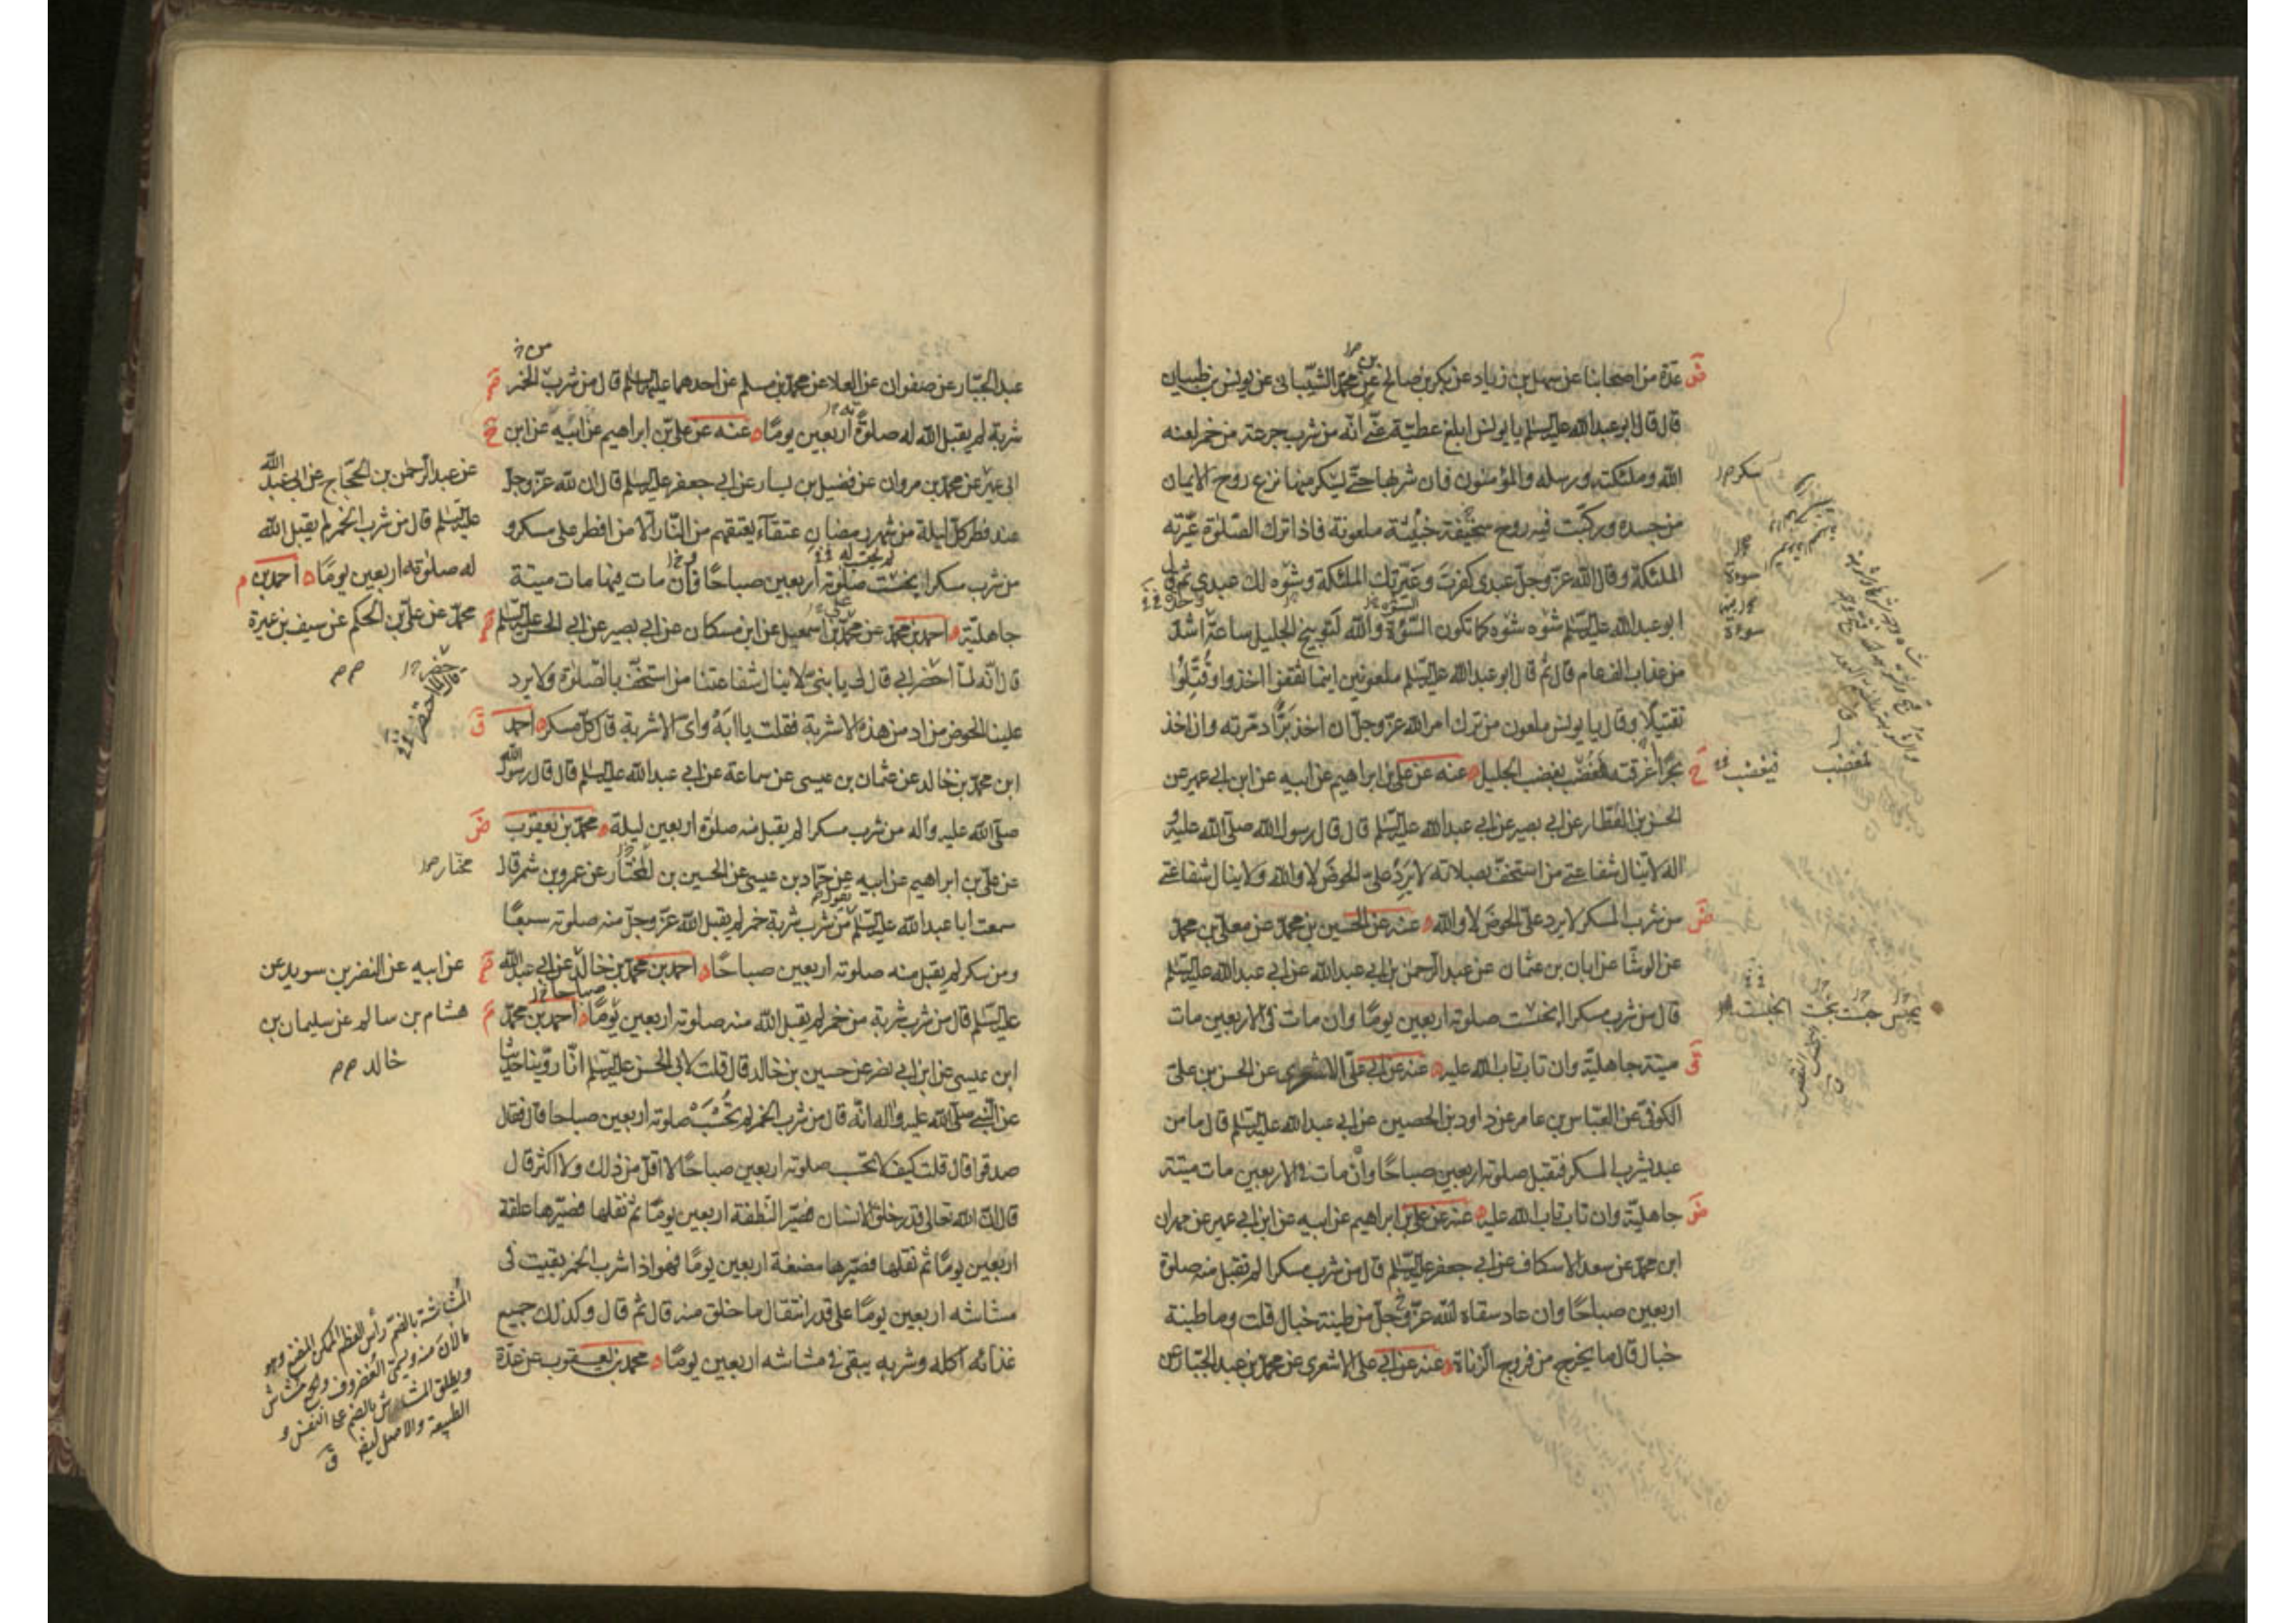 عدة من اصحابنا عن سهل بن زياد عن بكر بن صالح عن محمد الشيباني عن يونس بن ظبيان
قال قال ابو عبد الله عليه السلم يا يونس ابلغ عطية عنّي انّه من شرب جرعة من خمر لعنه
الله وملئكته ورسله والمؤمنون فان شربها حتّى يسكر منها نزع روح الايمان
من جسده وركبت فيه روح سخيفة خبيثة ملعونة فاذا ترك الصّلوة عيّرته
الملئكة وقال الله عزّ وجلّ عبدي كفرت وعيّرتك الملئكة وشوه لك عبدي ثم قال
ابو عبد الله عليه السلم شوه شوه كما تكون السّوءة والله لتوبيخ الجليل ساعة اشدّ
من عذاب الف عام قال ثم قال ابو عبد الله عليه السلم ملعونين اينما ثقفوا اخذوا وقُتّلوا
تقتيلًا وقال يا يونس ملعون من ترك امر الله عزّ وجلّ ان اخذ برًّا دمّرته وان اخذ
بحرًا غرقته يغضب بغضب الجليل عنه عن علي بن ابراهيم عن ابيه عن ابن ابي عمير عن
الحسن بن العطّار عن ابي بصير عن ابي عبد الله عليه السلم قال قال رسول الله صلّى الله عليه و
اله لا ينال شفاعتي من استخفّ بصلاته لا يرد علىّ الحوض لا والله ولا ينال شفاعتي
من شرب المسكر لا يرد علىّ الحوض لا والله عنه عن الحسين بن محمد عن معلّى بن محمد
عن الوشّا عن ابان بن عثمان عن عبد الرحمن بن ابي عبد الله عن ابي عبد الله عليه السلم
قال من شرب مسكرا انحبست صلوته اربعين يومًا وان مات في الاربعين مات
ميتة جاهليّة وان تاب تاب الله عليه عنه عن ابي علي الاشعري عن الحسن بن علي
الكوفيّ عن العبّاس بن عامر عن داود بن الحصين عن ابي عبد الله عليه السلم قال ما من
عبد يشرب المسكر فتقبل صلوته اربعين صباحًا وان مات في الاربعين مات ميتة
جاهليّة وان تاب تاب الله عليه عنه عن علي بن ابراهيم عن ابيه عن ابن ابي عمير عن مهران
ابن محمد عن سعد الاسكاف عن ابي جعفر عليه السلم قال من شرب مسكرا لم تقبل منه صلوة
اربعين صباحًا وان عاد سقاه الله عزّ وجلّ من طينة خبال قلت وما طينة
خبال قال ما يخرج من فروج الزّناة عنه عن ابي علي الاشعري عن محمد بن عبد الجبّار عن
سكر
سوءة
سوءة
فيغضب
لمغضب
عبد الجبّار عن صفوان عن العلا عن محمد بن مسلم عن احدهما عليهما السلم قال من شرب الخمر
شربة لم يقبل الله له صلوة اربعين يومًا عنه عن علي بن ابراهيم عن ابيه عن ابن
ابي عمير عن محمد بن مروان عن فضيل بن يسار عن ابي جعفر عليه السلم قال ان لله عزّ وجلّ
عند فطر كلّ ليلة من شهر رمضان عتقاء يعتقهم من النّار الّا من افطر على مسكر و
من شرب مسكرا انحبست صلوته اربعين صباحًا فان مات فيها مات ميتة
جاهليّة احمد بن محمد عن محمد بن اسمعيل عن ابن مسكان عن ابي بصير عن ابي الحسن عليه السلم
قال انّه لمّا احتضر ابي قال لي يا بنيّ لا ينال شفاعتنا من استخفّ بالصّلوة ولا يرد
علينا الحوض من ادمن هذه الاشربة فقلت يا ابه واىّ الاشربة قال كلّ مسكر احمد
ابن محمد بن خالد عن عثمان بن عيسى عن سماعة عن ابي عبد الله عليه السلم قال قال رسول الله
صلّى الله عليه واله من شرب مسكرا لم يقبل منه صلوة اربعين ليلة محمد بن يعقوب
عن علي بن ابراهيم عن ابيه عن حمّاد بن عيسى عن الحسين بن المختار عن عمرو بن شمر قال
سمعت ابا عبد الله عليه السلم يقول من شرب شربة خمر لم يقبل الله عزّ وجلّ منه صلوته سبعًا
ومن سكر لم يقبل منه صلوته اربعين صباحًا احمد بن محمد بن خالد عن ابي عبد الله
عليه السلم قال من شرب شربة من خمر لم يقبل الله منه صلوته اربعين يومًا احمد بن محمد
ابن عيسى عن ابن ابي نصر عن حسين بن خالد قال قلت لابي الحسن عليه السلم انّا روّينا حديثا
عن النّبي صلّى الله عليه واله انّه قال من شرب الخمر لم تُحْسَبْ صلوته اربعين صباحا قال فقال
صدقوا قال قلت كيف لا تحسب صلوته اربعين صباحًا لا اقلّ من ذلك ولا اكثر قال
قال انّ الله تعالى قدر خلق الانسان فصيّر النّطفة اربعين يومًا ثم نقلها فصيّرها علقة
اربعين يومًا ثم نقلها فصيّرها مضغة اربعين يومًا فهو اذا شرب الخمر بقيت في
مشاشه اربعين يومًا على قدر انتقال ما خلق منه قال ثم قال وكذلك جميع
غذائه اكله وشربه يبقى في مشاشه اربعين يومًا محمد بن يعقوب عن عدّة
عن عبد الرّحمن بن الحجّاج عن ابي عبد الله
عليه السلم قال من شرب الخمر لم يقبل الله
له صلوته اربعين يومًا احمد بن
محمد عن علي بن الحكم عن سيف بن عميرة
مختار
عن ابيه عن النضر بن سويد عن
هشام بن سالم عن سليمان بن
خالد
المشاشة بالضمّ رأس العظم الممكن المضغ وهو
ما لان منه ويسمّى الغضروف والجمع مشاش
ويطلق المشاش بالضم على النفس و
الطبيعة والاصل ايضا
ق